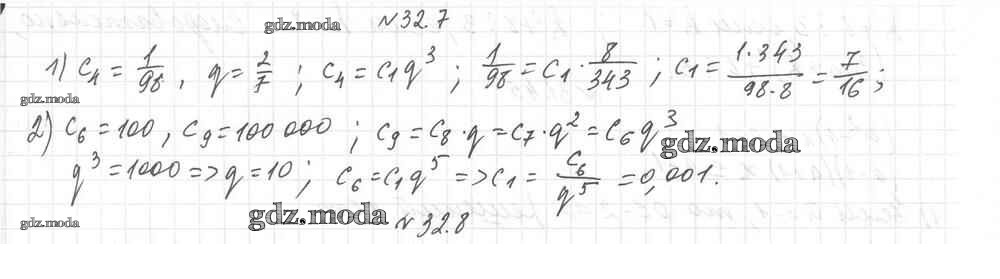 gdz.moda №32.7
1) c₄ = 1/98 , q = 2/7 ; c₄ = c₁q³ ; 1/98 = c₁ · 8/343 ; c₁ = 1·343/98·8 = 7/16 ;
gdz.moda
2) c₆ = 100 , c₉ = 100 000 ; c₉ = c₈ · q = c₇ · q² = c₆q³
gdz.moda
q³ = 1000 => q = 10 ; c₆ = c₁q⁵ => c₁ = c₆/q⁵ = 0,001.
gdz.moda gdz.moda №32.8